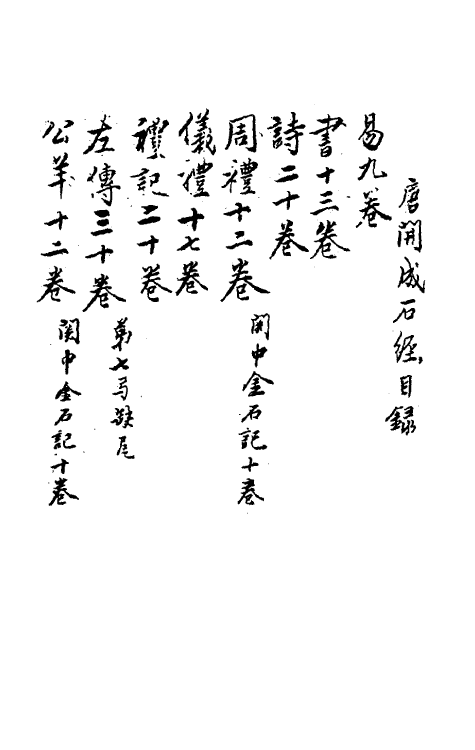 唐開成石經目録
易九卷
書十三卷
詩二十卷
周禮十二卷 関中金石記十卷
儀禮十七卷
禮記二十卷
左傳三十卷 第七 缺尾
公羊十二卷 関中金石記十卷